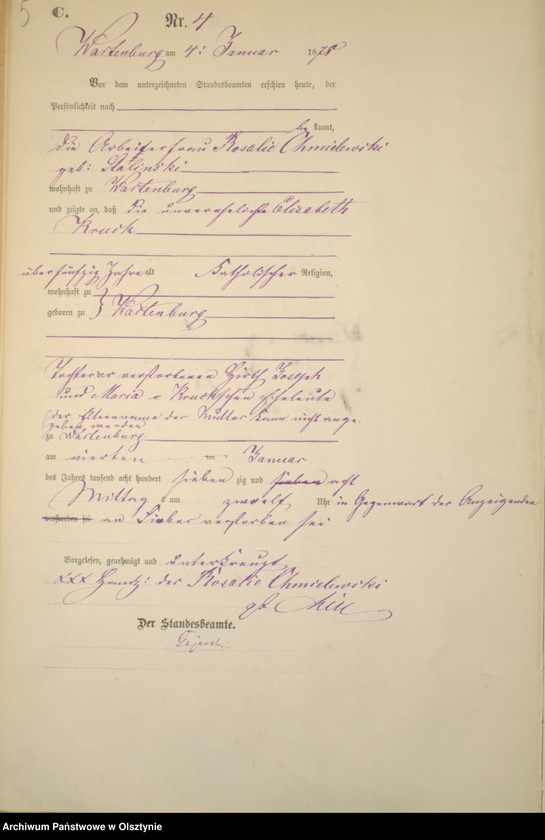 5
C.
Nr. 4
Wartenburg am 4: Januar 1878
Vor dem unterzeichneten Standesbeamten erschien heute, der
Persönlichkeit nach
be kannt,
die Arbeiterfrau Rosalie Chmielewski
geb: Stalinski
wohnhaft zu Wartenburg
und zeigte an, daß die unverehelichte Elizabeth
Kruck
über fünfzig Jahre alt Katholischer Religion,
wohnhaft zu
geboren zu } Wartenburg
Tochter der verstorbenen Hirth Joseph
und Maria Kruckschen Eheleute
(der Elternname der Mutter kann nicht ange-
geben werden
zu Wartenburg
am vierten ten Januar
des Jahres tausend acht hundert sieben zig und sieben acht
Mittag s um zwoelf Uhr in Gegenwart der Anzeigenden
verstorben sei an Fieber verstorben sei
Vorgelesen, genehmigt und unterkreuzt
XXX Handz: der Rosalie Chmielewski
Der Standesbeamte.
Archiwum Państwowe w Olsztynie